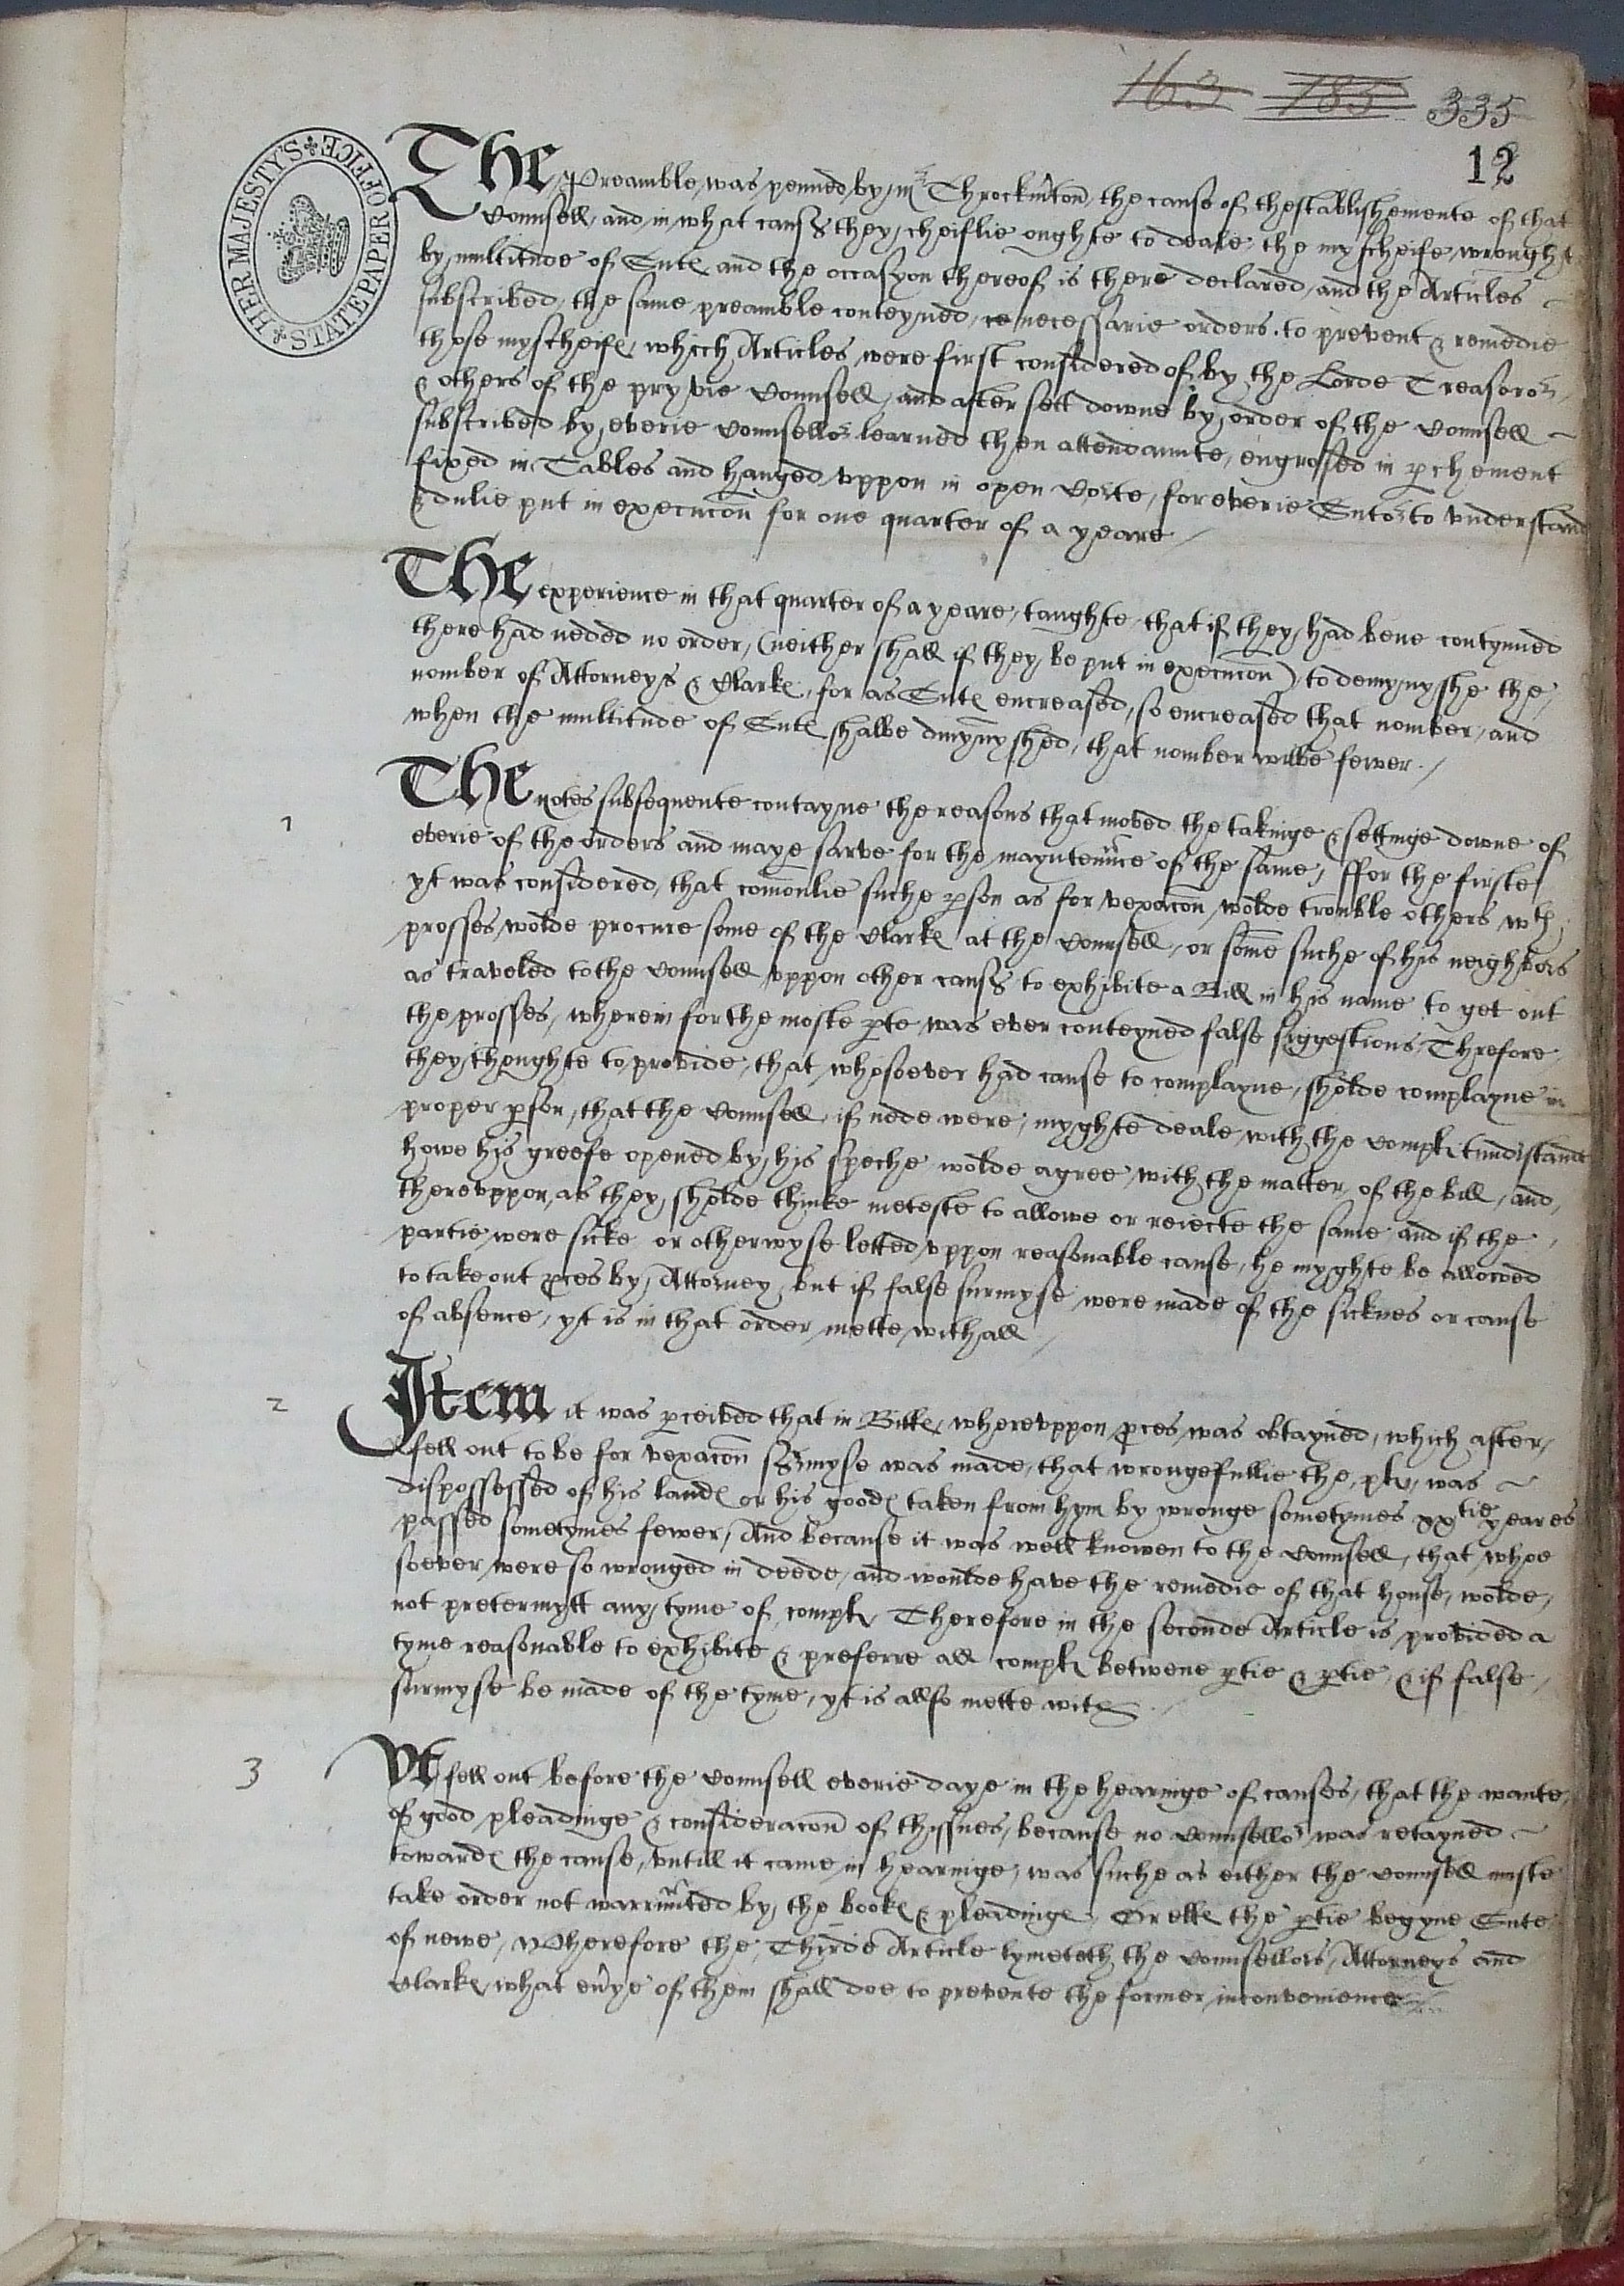 163 185 335
12
HER MAJESTY'S STATE PAPER OFFICE
The Preamble, was penned by mr Throckm'ton, the cause of thestablishemente of that
Counsell, and in what causs they cheiflie oughte to deale the myscheife wrought
by multitude of Sutes and the occasyon thereof is there declared, and the Articles
subscribed, the same preamble conteyned, necessarie orders to prevent & remedie
those myscheifes, which Articles were first considered of by the Lorde Treasoror,
& others of the pryvie Counsell, and after sett downe by order of the Counsell
subscribed by everie Counsellor learned then attendaunte, engrossed in pchement
fixed in Tables and hanged uppon in open Corte, for everie Sutor to understand
& dulie put in execucon for one quarter of a yeare
The experience in that quarter of a yeare, taughte that if they had bene contynued
there had neded no order, (neither shall if they be put in execucon) to demynyshe the
nomber of Attorneys & Clarkes, for as Sutes encreased, so encreased that nomber, and
when the multitude of Sutes shalbe dmynyshed, that nomber wilbe fewer.
1 The notes subsequente contayne the reasons that moved the takinge & settinge downe of
everie of the orders and maye sarve for the mayntenunce of the same, ffor the firste
yt was considered, that comonlie suche pson as for vexacon wolde trouble others wth
prosses, wolde procure some of the Clarkes at the Counsell, or some suche of his neighbors
as traveled to the Counsell uppon other causs to exhibite a Bill in his name to get out
the prosses, wherein for the moste pte was ever conteyned false suggestions, Threfore
they thoughte to provide, that whosoever had cause to complayne, sholde complayne in
proper pson, that the Counsell if nede were, myghte deale with the complt tundistande
howe his greefe opened by his speche wolde agree with the matter of the bill, and
thereuppon, as they sholde thinke meteste to allowe or reiecte the same and if the
partie were sicke or otherwyse letted uppon reasonable cause, he myghte be allowed
to take out pces by Attorney, but if false surmyse were made of the sicknes or cause
of absence, yt is in that order mette withall
2 Item it was pceived that in Billes, whereuppon pces was obtayned, which after
fell out to be for vexacon surmyse was made, that wrongefullie the plt was
dispossessed of his landes or his goodes taken from hym by wronge sometymes xxtie yeares
passed sometymes fewer, And because it was well knowen to the Counsell, that whoe
soever were so wronged in deede, and woulde have the remedie of that house, wolde
not pretermytt any tyme of complt Therefore in the seconde Article is provided a
tyme reasonable to exhibite & preferre all complts betwene ptie & ptie, & if false
surmyse be made of the tyme, yt is allso mette with
3 Yt fell out before the Counsell everie daye in the hearinge of causes, that the wante
of good pleadinge & consideracon of thissues, because no Counsellor was retayned
towardes the cause, untill it came in hearinge, was suche as either the Counsell muste
take order not warrunted by the bookes & pleadinges, Or elles the ptie begyne Sute
of newe, Wherefore the Thirde Article lymeteth the Counsellors, Attorneys and
Clarkes, what en'ye of them shall doe to prevente the former inconvenience